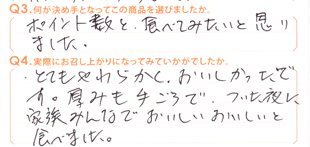 Q3.何が決め手となってこの商品を選びましたか。
ポイント数と、食べてみたいと思い
ました。
Q4.実際にお召し上がりになってみていかがでしたか。
とてもやわらかく、おいしかったで
す。厚みも手ごろで、ついた夜に
家族みんなでおいしいおいしいと
食べました。